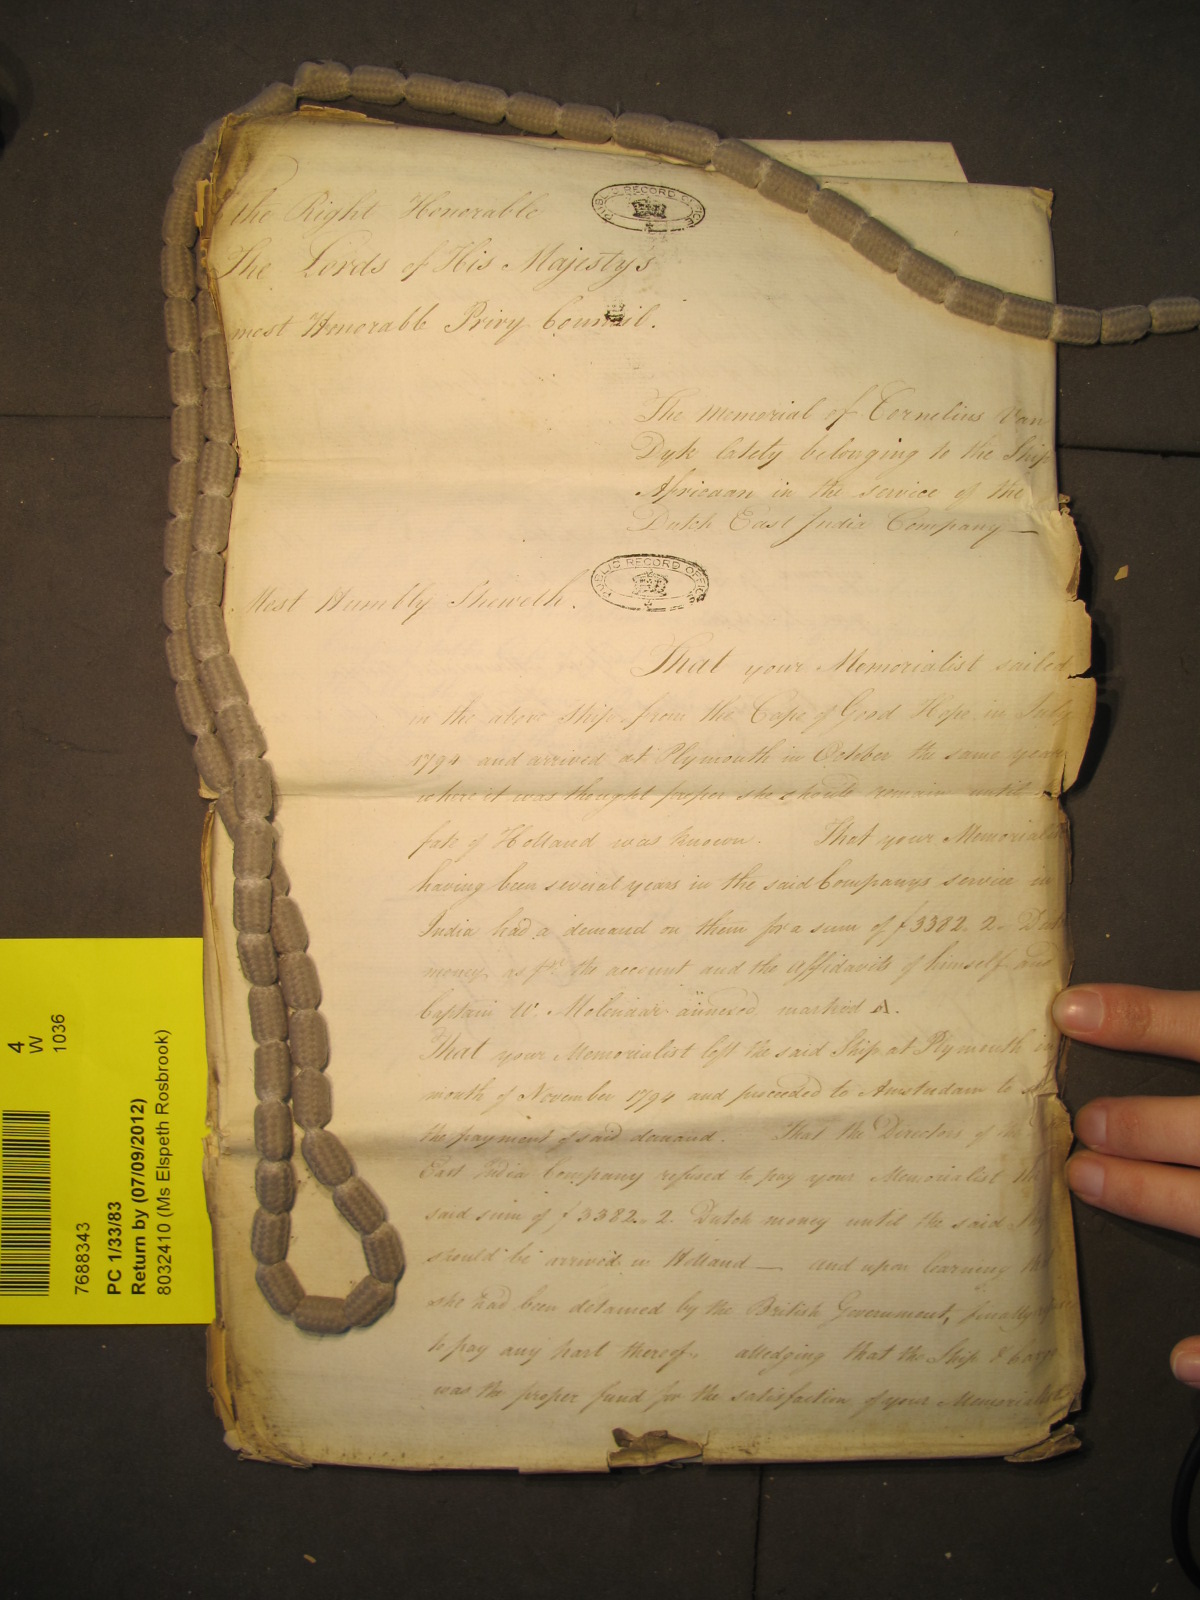 the Right Honorable
The Lords of His Majestys
most Honorable Privy Council.
PUBLIC RECORD OFFICE
The Memorial of Cornelius Van
Dyk lately belonging to the Ship
Africaan in the service of the
Dutch East India Company
PUBLIC RECORD OFFICE
Most Humbly Sheweth.
That your Memorialist sailed
in the above Ship from the Cape of Good Hope in July
1794 and arrived at Plymouth in October the same year
where it was thought proper she should remain until
fate of Holland was known. That your Memorialist
having been several years in the said Companys service in
India had a demand on them for a sum of f 3382. 2. Dutch
money as pr. the account and the affidavits of himself and
Captain W. Molenaar annexed marked A.
That your Memorialist left the said Ship at Plymouth in
month of November 1794 and proceeded to Amstredam to
the payment of said demand. That the Directors of the
East India Company refused to pay your Memorialist the
said sum of f 3382. 2. Dutch money until the said
should be arrived in Holland — and upon learning that
she had been detained by the British Government, finally
to pay any part thereof, alledging that the Ship & Cargo
was the proper fund for the satisfaction of your Memorialist
4
W
1036
7688343
PC 1/33/83
Return by (07/09/2012)
8032410 (Ms Elspeth Rosbrook)